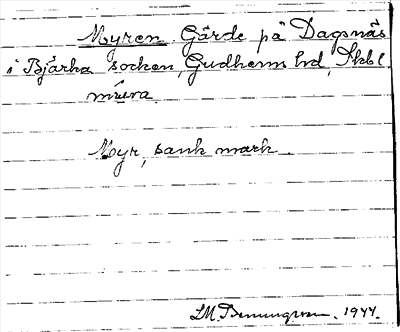 Myren, Gärde på Dagsnäs
i Bjärka socken, Gudhems hd, Skbl
Myr, sank mark.
1944.